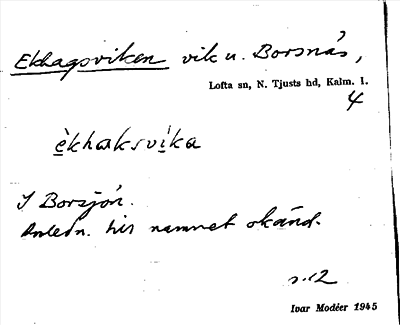 Ekhagsviken vik u. Borsnäs,
Lofta sn, N. Tjusts hd, Kalm. l.
4
èkhaksvi̇ka
I Borsjön.
Anledn. till namnet okänd.
s. 12
Ivar Modéer 1945